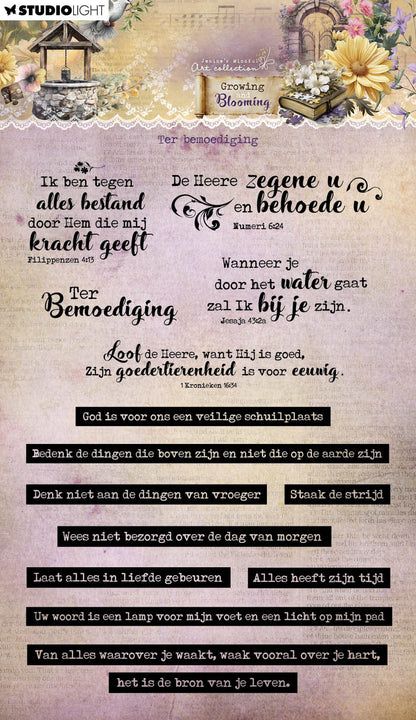 STUDIOLIGHT
Jenine's Mindful
Art collection
Growing
Blooming
Ter bemoediging
Ik ben tegen
alles bestand
door Hem die mij
kracht geeft
Filippenzen 4:13
De Heere Zegene u
en behoede u
Numeri 6:24
Ter
Bemoediging
Wanneer je
door het water gaat
zal Ik bij je zijn.
Jesaja 43:2a
Loof de Heere, want Hij is goed,
Zijn goedertierenheid is voor eeuwig.
1 Kronieken 16:34
God is voor ons een veilige schuilplaats
Bedenk de dingen die boven zijn en niet die op de aarde zijn
Denk niet aan de dingen van vroeger
Staak de strijd
Wees niet bezorgd over de dag van morgen
Laat alles in liefde gebeuren
Alles heeft zijn tijd
Uw woord is een lamp voor mijn voet en een licht op mijn pad
Van alles waarover je waakt, waak vooral over je hart,
het is de bron van je leven.